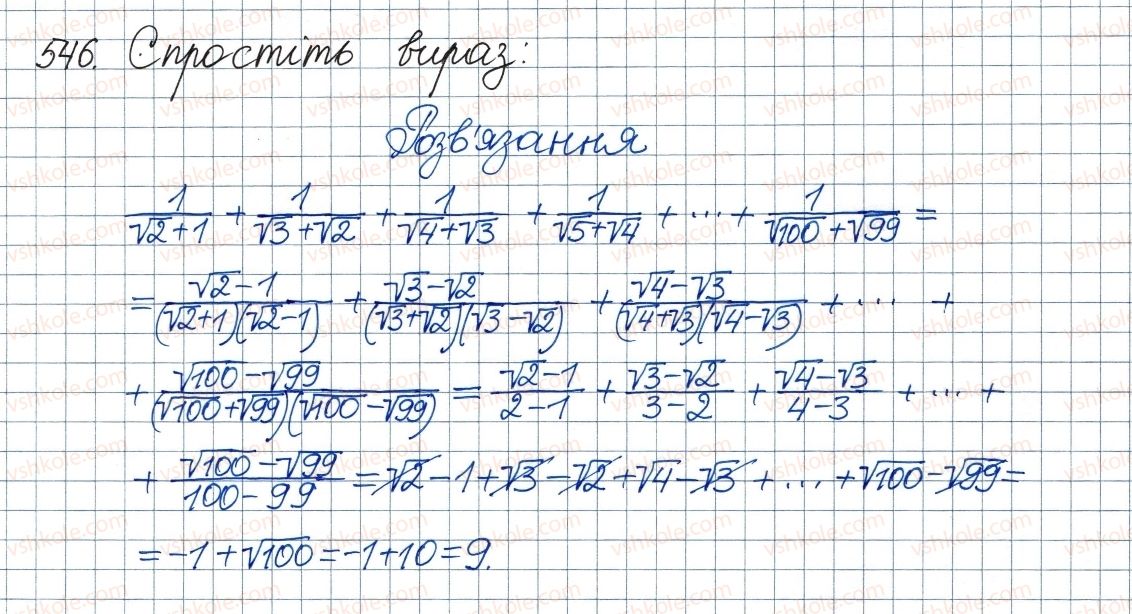 546. Спростіть вираз:
Розв'язання
1/(√2+1) + 1/(√3+√2) + 1/(√4+√3) + 1/(√5+√4) + ... + 1/(√100+√99) =
= (√2-1)/((√2+1)(√2-1)) + (√3-√2)/((√3+√2)(√3-√2)) + (√4-√3)/((√4+√3)(√4-√3)) + ... +
+ (√100-√99)/((√100+√99)(√100-√99)) = (√2-1)/(2-1) + (√3-√2)/(3-2) + (√4-√3)/(4-3) + ... +
+ (√100-√99)/(100-99) = √2-1+√3-√2+√4-√3+...+√100-√99=
= -1+√100=-1+10=9.